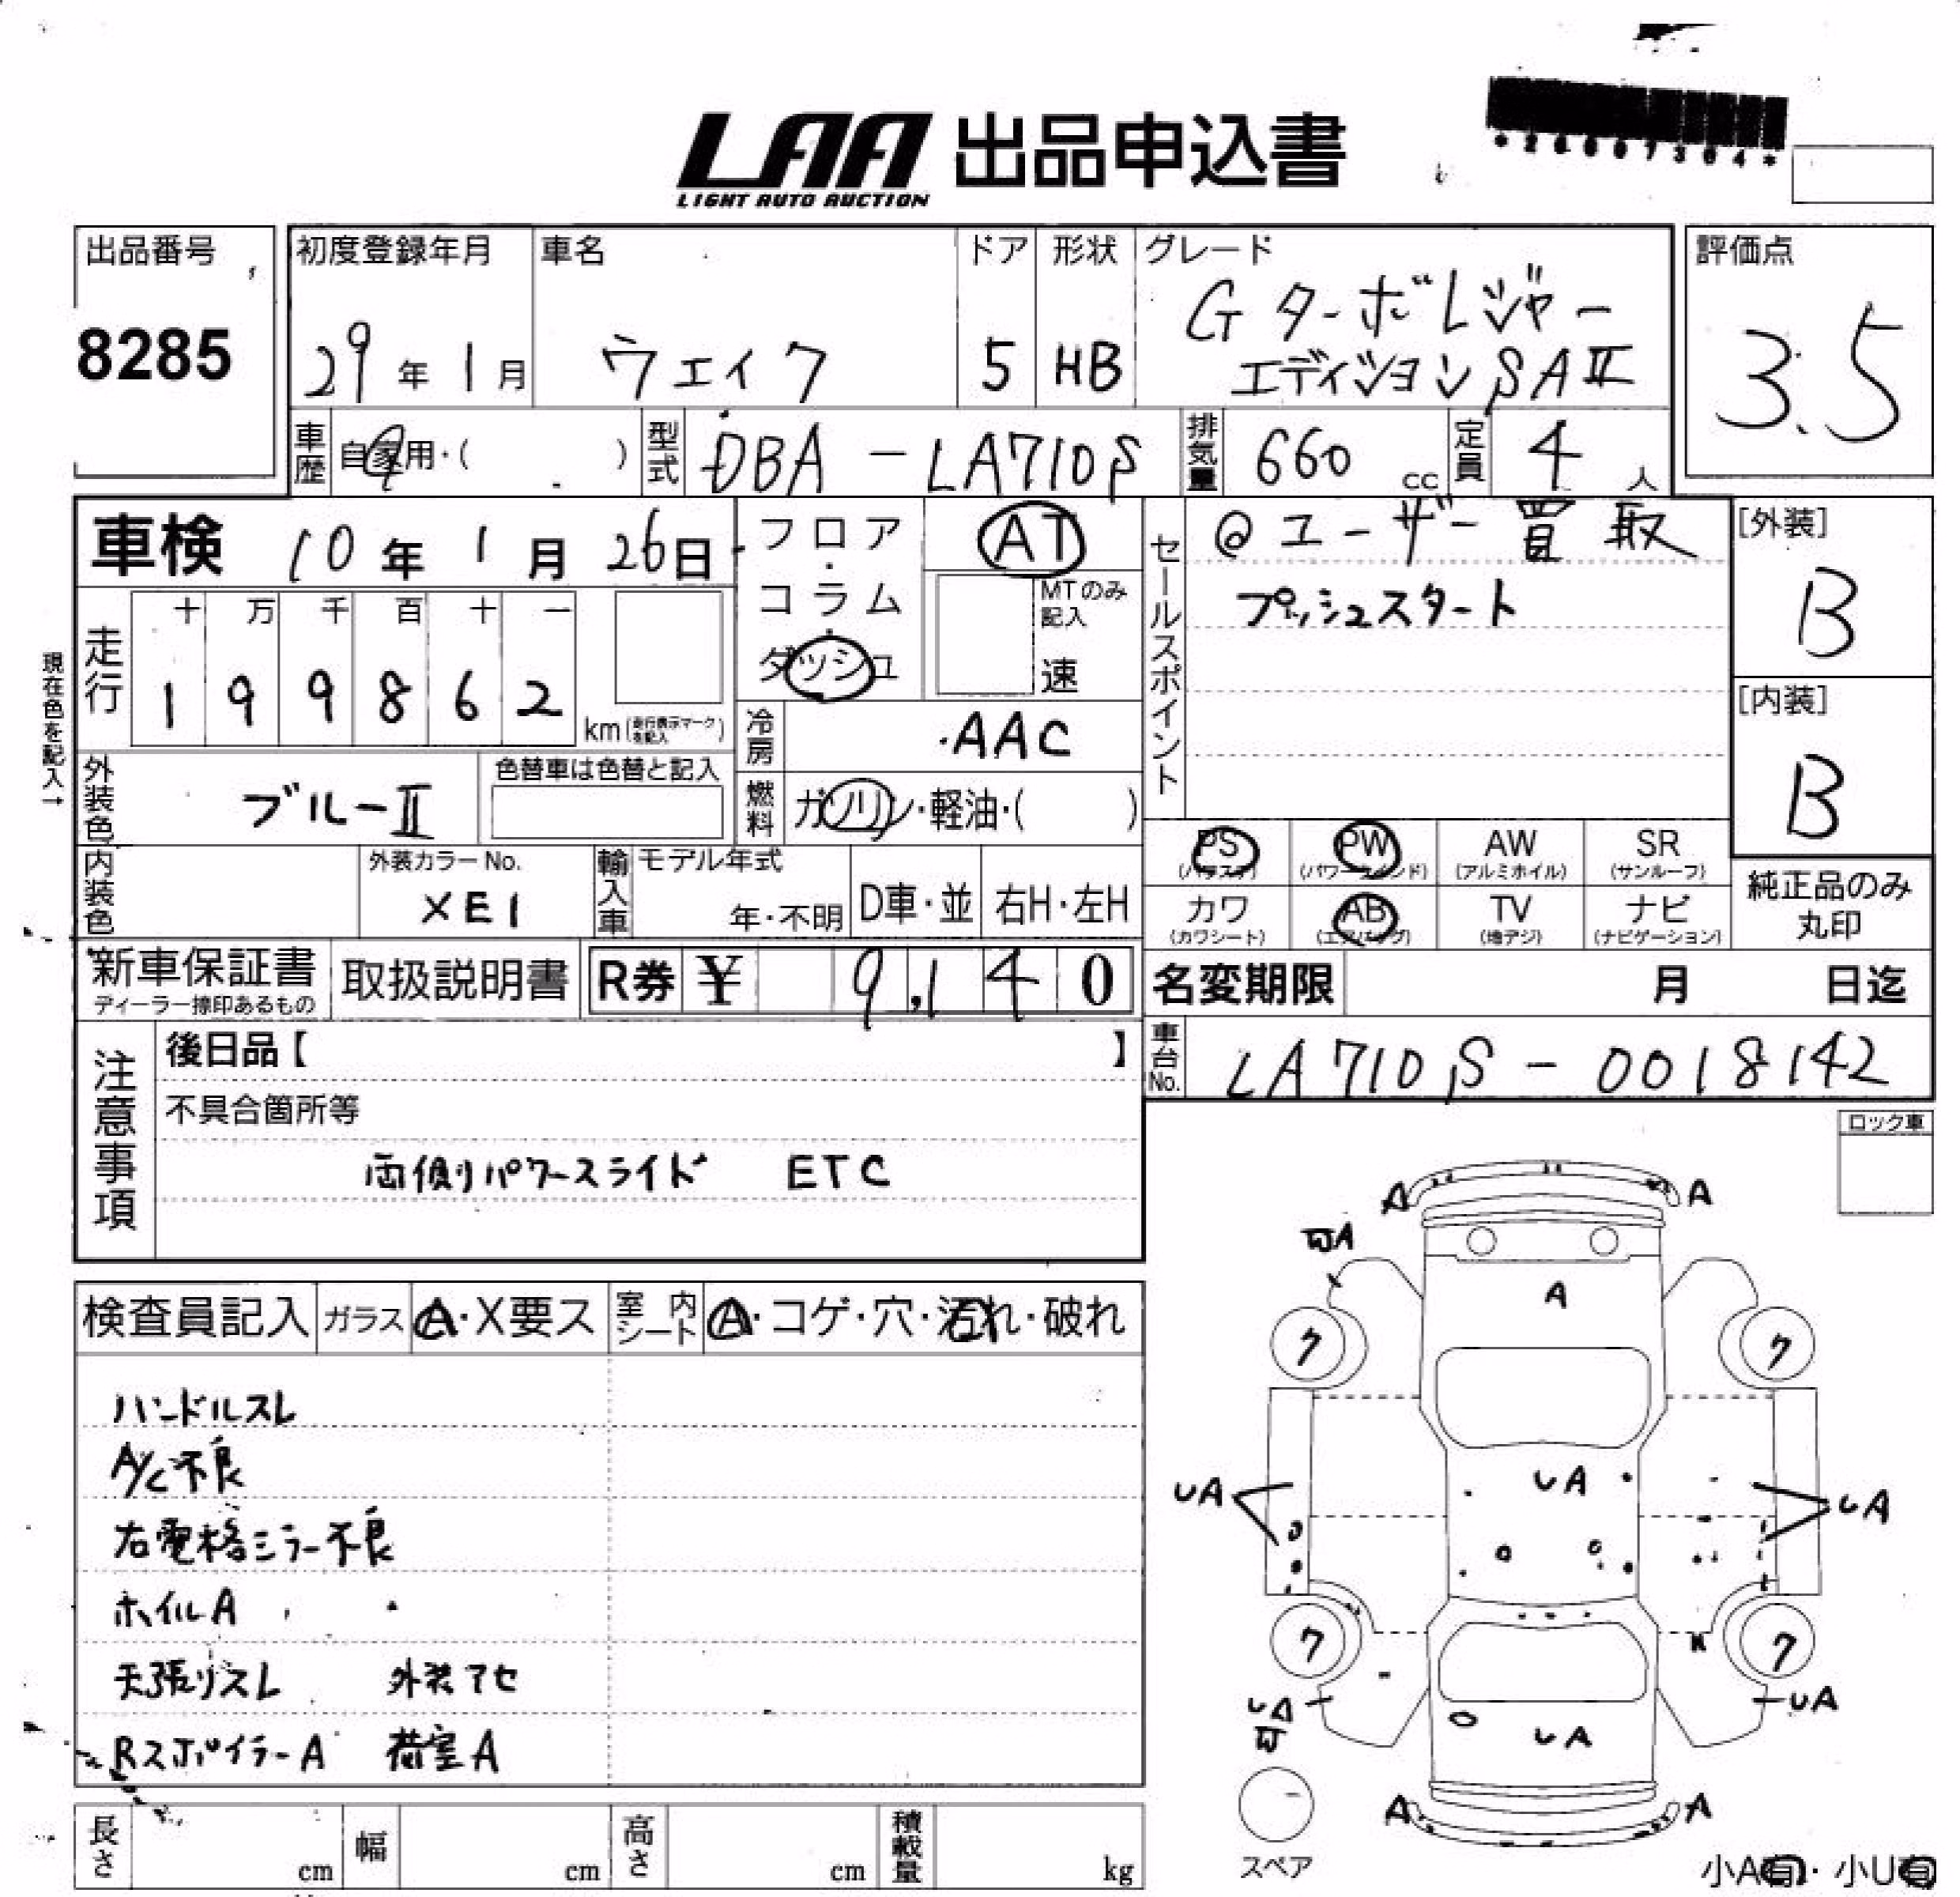 LAA 出品申込書
LIGHT AUTO AUCTION
出品番号
8285
初度登録年月
29年1月
車名
ウェイク
ドア
5
形状
HB
グレード
Gターボレジャー
エディションSAⅡ
評価点
3.5
車歴
自家用・( )
型式
DBA-LA710S
排気量
660cc
定員
4人
車検 10年1月26日
フロア・コラム・ダッシュ
AT
MTのみ記入
速
セールスポイント
@ユーザー買取
プッシュスタート
[外装]
B
[内装]
B
現在色を記入→
走行
十万千百十一
199862
km(走行表示マークを記入)
冷房
AAC
外装色
ブルーⅡ
色替車は色替と記入
燃料
ガソリン・軽油・( )
内装色
外装カラーNo.
XE1
輸入車
モデル年式
年・不明
D車・並
右H・左H
PS
(パワステ)
PW
(パワーウインド)
AW
(アルミホイル)
SR
(サンルーフ)
カワ
(カワシート)
AB
(エアバッグ)
TV
(地デジ)
ナビ
(ナビゲーション)
純正品のみ
丸印
新車保証書
ディーラー捺印あるもの
取扱説明書
R券 ¥ 9,140
名変期限 月 日迄
車台No.
LA710S-0018142
注意事項
後日品【 】
不具合箇所等
両側パワースライド ETC
ロック車
検査員記入
ガラス
A・X要ス
室内シート
A・コゲ・穴・汚れ・破れ
ハンドルスレ
A/C不良
右電格ミラー不良
ホイルA
天張リスレ 外装アセ
RスポイラーA 荷室A
A
A
A
A
ク
ク
UA
UA
UA
ク
ク
UA
UA
UA
A
A
スペア
小A有・小U有
長さ cm
幅 cm
高さ cm
積載量 kg